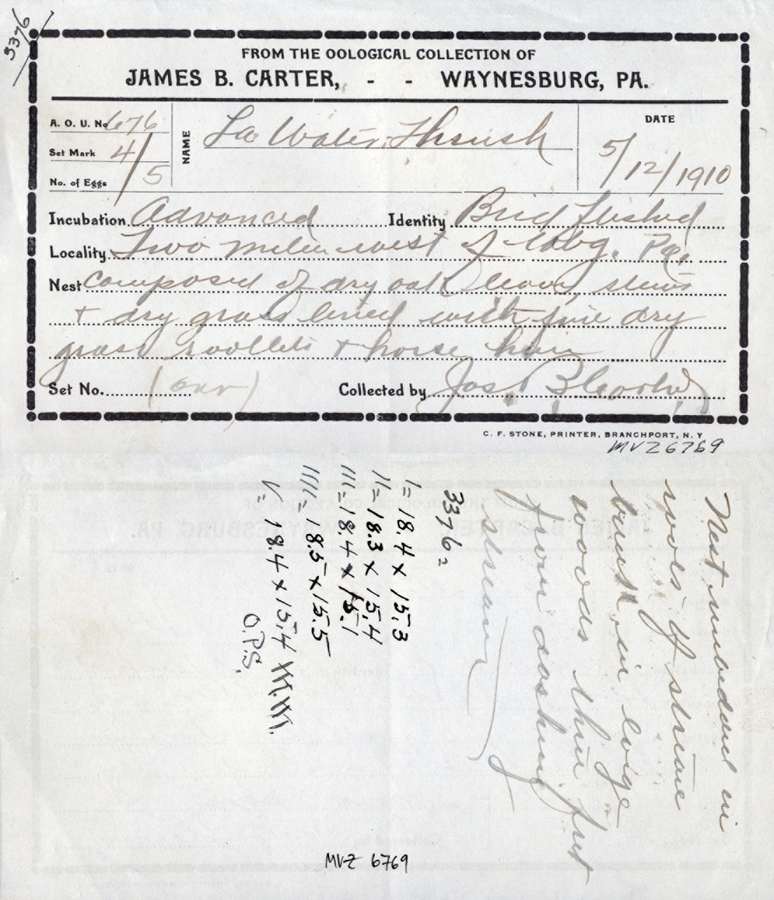 3376
FROM THE OOLOGICAL COLLECTION OF
JAMES B. CARTER, - - WAYNESBURG, PA.
A. O. U. No. 676
Set Mark 4/5
No. of Eggs
NAME La Water Thrush
DATE
5/12/1910
Incubation Advanced Identity Bird flushed
Locality Two miles west of Wbg. Pa.
Nest composed of dry oak leaves, stems
+ dry grass lined with fine dry
grass rootlets + horse hair
Set No. (one) Collected by Jas. B Carter
C. F. STONE, PRINTER, BRANCHPORT, N. Y
MVZ6769
Nest imbedded in
roots of stream
bank in large
woods three feet
from dashing
stream
3376=
I=18.4 x 15.3
II=18.3 x 15.4
III=18.4 x 15.1
IIII=18.5 x 15.5
V=18.4 x 15.4 M.M.
O.P.S.
MVZ 6769